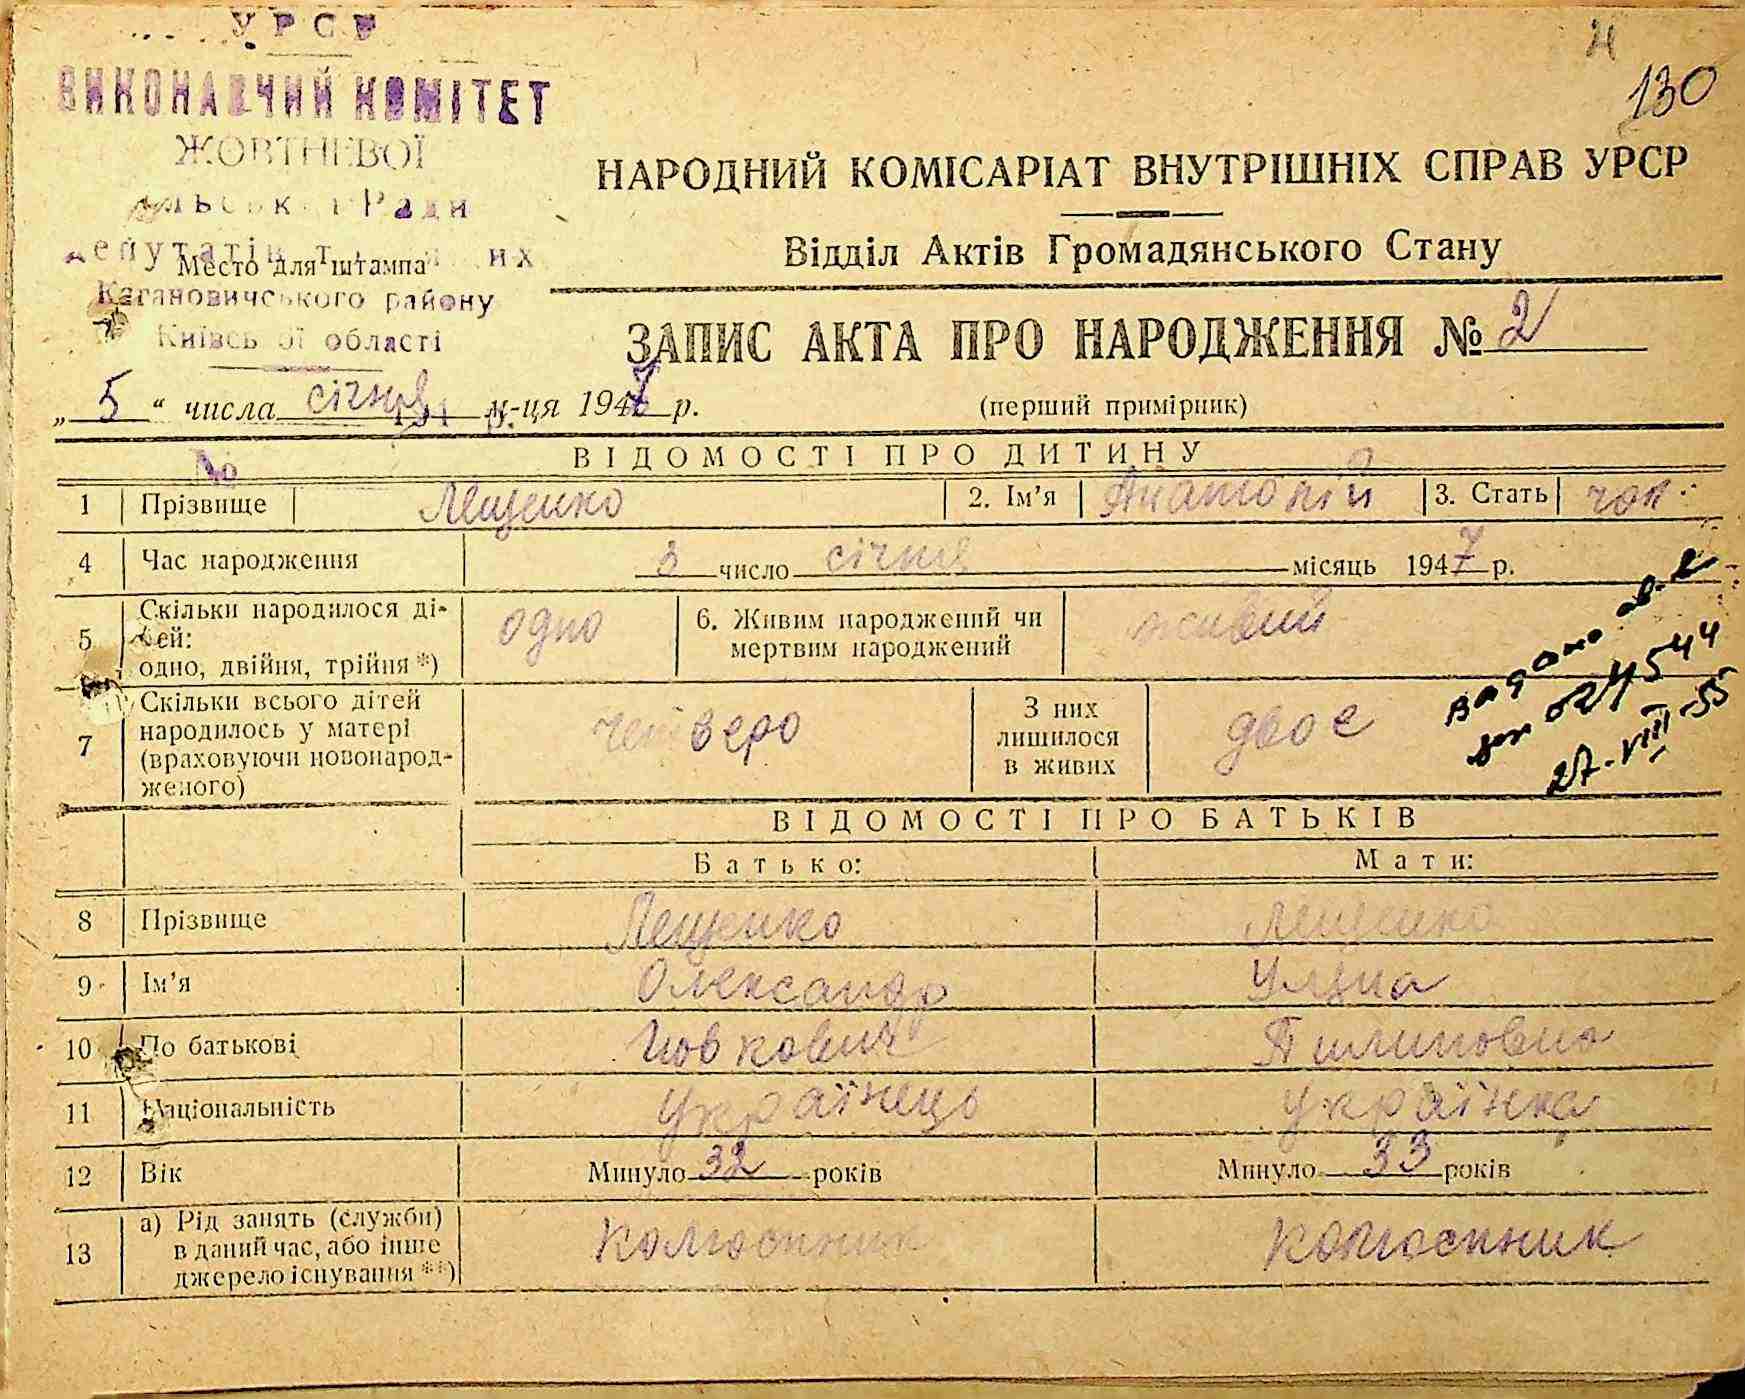 УРСР
ВИКОНАВЧИЙ КОМІТЕТ
ЖОВТНЕВОЇ
Ради
Место для штампа
Кагановичського району
області
130
НАРОДНИЙ КОМІСАРІАТ ВНУТРІШНІХ СПРАВ УРСР
Відділ Актів Громадянського Стану
ЗАПИС АКТА ПРО НАРОДЖЕННЯ № 2
„ 5 “ числа січня м-ця 1947 р.
(перший примірник)
№
ВІДОМОСТІ ПРО ДИТИНУ
1 Прізвище Лещенко 2. Ім’я Анатолій 3. Стать чол.
4 Час народження 3 число січня місяць 1947 р.
5 Скільки народилося ді-
тей:
одно, двійня, трійня *) одно 6. Живим народжений чи
мертвим народжений живий
7 Скільки всього дітей
народилось у матері
(враховуючи новонарод-
женого) четверо З них
лишилося
в живих двоє
27-VIII-55
ВІДОМОСТІ ПРО БАТЬКІВ
Батько: Мати:
8 Прізвище Лещенко Лещенко
9 Ім’я Олександр Уляна
10 По батькові Йовкович Пилиповна
11 Національність Українець Українка
12 Вік Минуло 32 років Минуло 33 років
13 а) Рід занять (служби)
в даний час, або інше
джерело існування **) колгоспник колгоспник